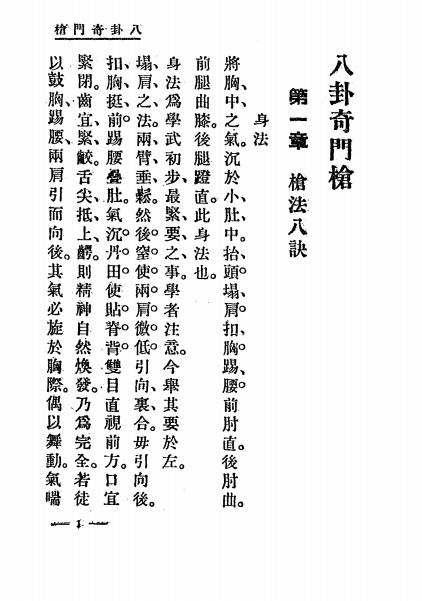 八卦奇門槍
八卦奇門槍
第一章　槍法八訣
身法
將胸、中、之、氣。沉於小、肚、中。抬、頭。塌、肩。扣、胸。踢、腰。前肘直。後肘曲。
前腿曲膝。後腿蹬直。此身法也。
身法爲學武初步、最緊、要之、事。學者注意。今舉其要於左。
塌、肩之法。兩臂、垂、鬆。然後窒使兩肩微低。引向、裏、合。毋引向後。
扣、胸、挺、前。踢腰疊肚。氣沉丹田。使貼脊背。雙目直視前方。口宜
緊閉。齒宜、緊、齩。舌尖、抵、上、齶。則精神自然煥發。乃爲完全。若徒
以鼓胸、踢腰、兩肩引而向後。其氣必旋於胸際。偶以舞動。氣喘
1